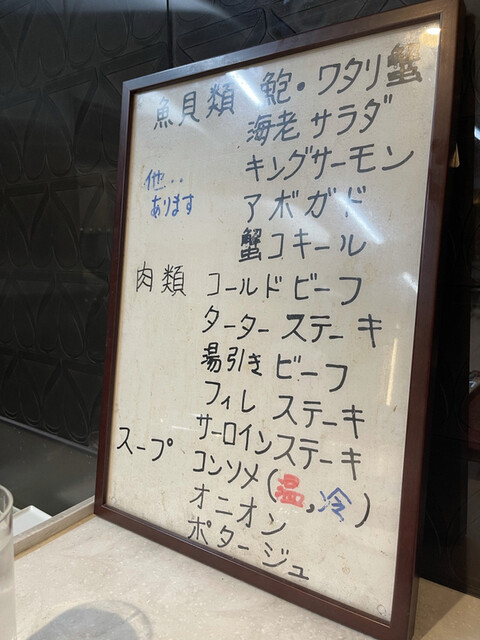 魚貝類 鮑・ワタリ蟹
海老サラダ
キングサーモン
他‥
あります
アボガド
蟹コキール
肉類 コールドビーフ
ターターステーキ
湯引きビーフ
フィレステーキ
サーロインステーキ
スープ コンソメ(温,冷)
オニオン
ポタージュ